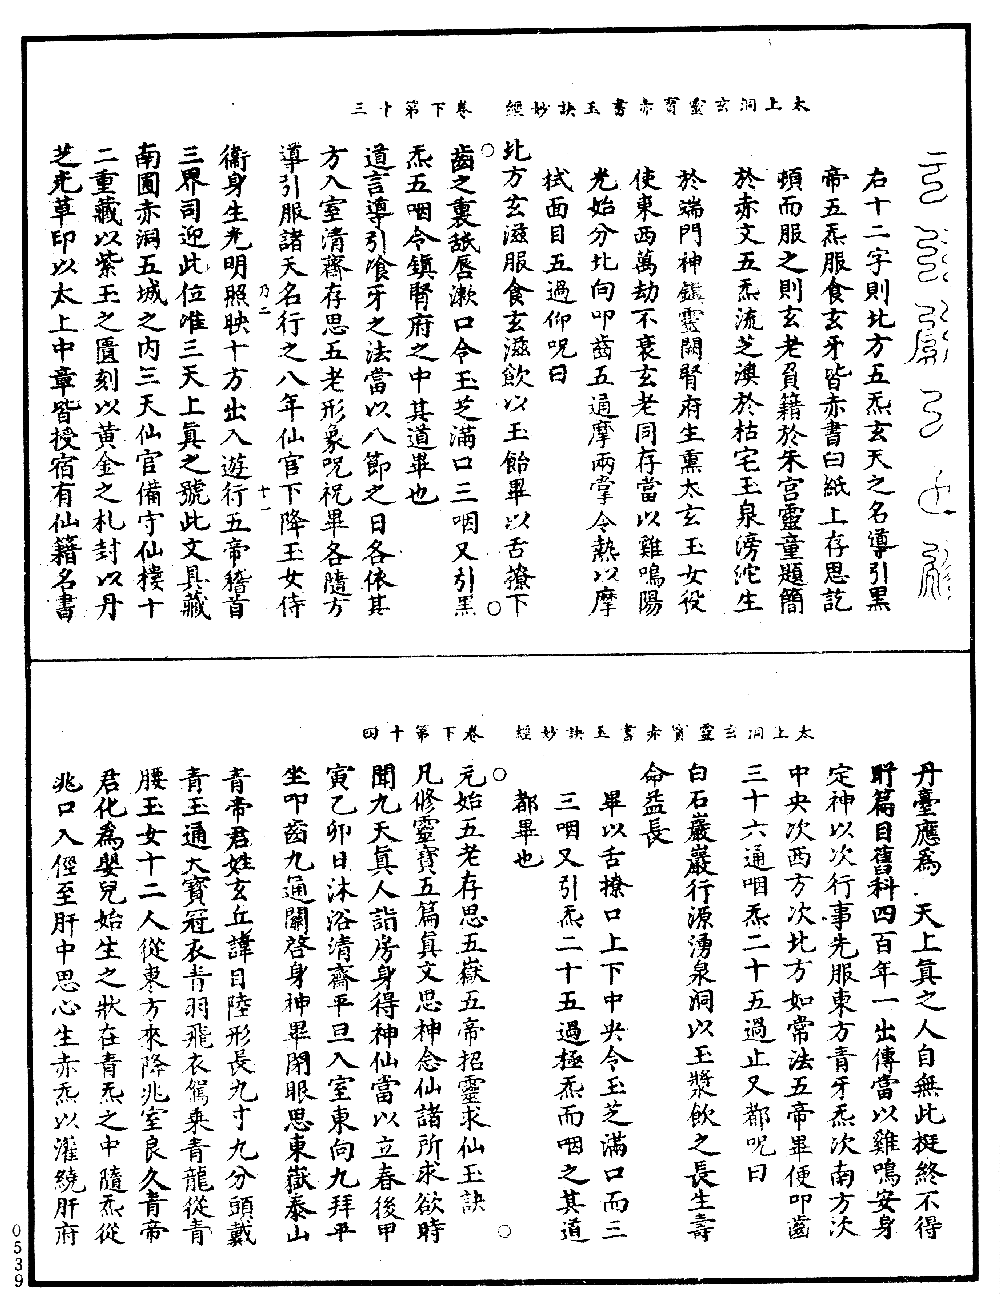 太上洞玄靈寶赤書玉訣妙經　卷下第十三
右十二字則北方五炁玄天之名導引黑
帝五炁服食玄牙皆赤書白紙上存思訖
頓而服之則玄老負籍於朱宮靈童題簡
於赤文五炁流芝澳於枯宅玉泉滂沱生
於端門神鎮靈闕腎府生熏太玄玉女役
使東西萬劫不衰玄老同存當以雞鳴陽
光始分北向叩齒五通摩兩掌令熱以摩
拭面目五過仰呪曰
北方玄滋服食玄滋飲以玉飴畢以舌撩下
齒之裏舐唇漱口令玉芝滿口三咽又引黑
炁五咽令鎮腎府之中其道畢也
道言導引飡牙之法當以八節之日各依其
方入室清齋存思五老形象呪祝畢各隨方
導引服諸天名行之八年仙官下降玉女侍
乃二　十一
衛身生光明照映十方出入遊行五帝稽首
三界司迎此位唯三天上眞之號此文具藏
南圃赤洞五城之內三天仙官備守仙樓十
二重藏以紫玉之匱刻以黃金之札封以丹
芝光草印以太上中章皆授宿有仙籍名書
太上洞玄靈寶赤書玉訣妙經　卷下第十四
丹臺應爲　天上眞之人自無此挺終不得
盱篇目舊科四百年一出傳當以雞鳴安身
定神以次行事先服東方青牙炁次南方次
中央次西方次北方如常法五帝畢便叩齒
三十六通咽炁二十五過止又都呪曰
白石巖巖行源湧泉洞以玉漿飲之長生壽
命益長
畢以舌撩口上下中央令玉芝滿口而三
三咽又引炁二十五過極炁而咽之其道
都畢也
元始五老存思五嶽五帝招靈求仙玉訣
凡修靈寶五篇眞文思神念仙諸所求欲時
聞九天眞人詣房身得神仙當以立春後甲
寅乙卯日沐浴清齋平旦入室東向九拜平
坐叩齒九通關啓身神畢閉眼思東嶽泰山
青帝君姓玄丘諱目陸形長九寸九分頭戴
青玉通天寶冠衣青羽飛衣駕乘青龍從青
腰玉女十二人從東方來降兆室良久青帝
君化爲嬰兒始生之狀在青炁之中隨炁從
兆口入徑至肝中思心生赤炁以灌繞肝府
0539